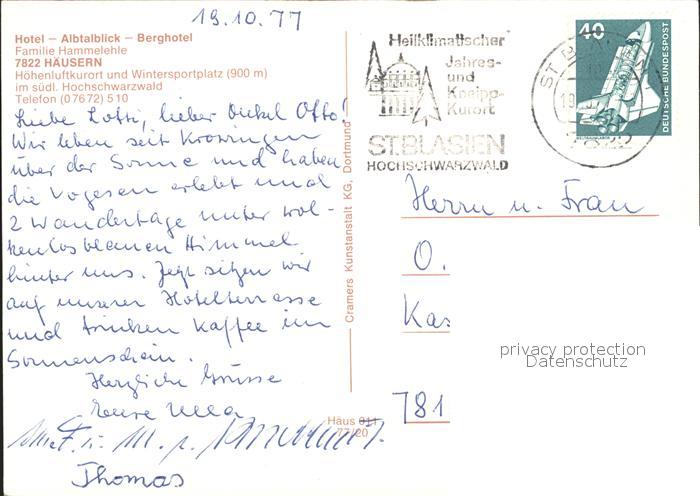 19.10.77
Hotel – Albtalblick – Berghotel
Familie Hammelehle
7822 HÄUSERN
Höhenluftkurort und Wintersportplatz (900 m)
im südl. Hochschwarzwald
Telefon (07672) 510
Liebe Lotti, lieber Onkel Otto!
Wir leben seit Krozingen
über der Sonne und haben
die Vogesen erlebt und
2 Wandertage unter wol-
kenlosblauem Himmel
hinter uns. Jetzt sitzen wir
auf unserer Hotelterrasse
und trinken Kaffee im
Sonnenschein.
Herzliche Grüsse
Eure Ulla
Thomas
Cramers Kunstanstalt KG, Dortmund
Häus 011
77/20
Heilklimatischer
Jahres-
und
Kneipp-
Kurort
ST.BLASIEN
HOCHSCHWARZWALD
40
DEUTSCHE BUNDESPOST
Herrn u. Frau
O.
Kas
781
privacy protection
Datenschutz